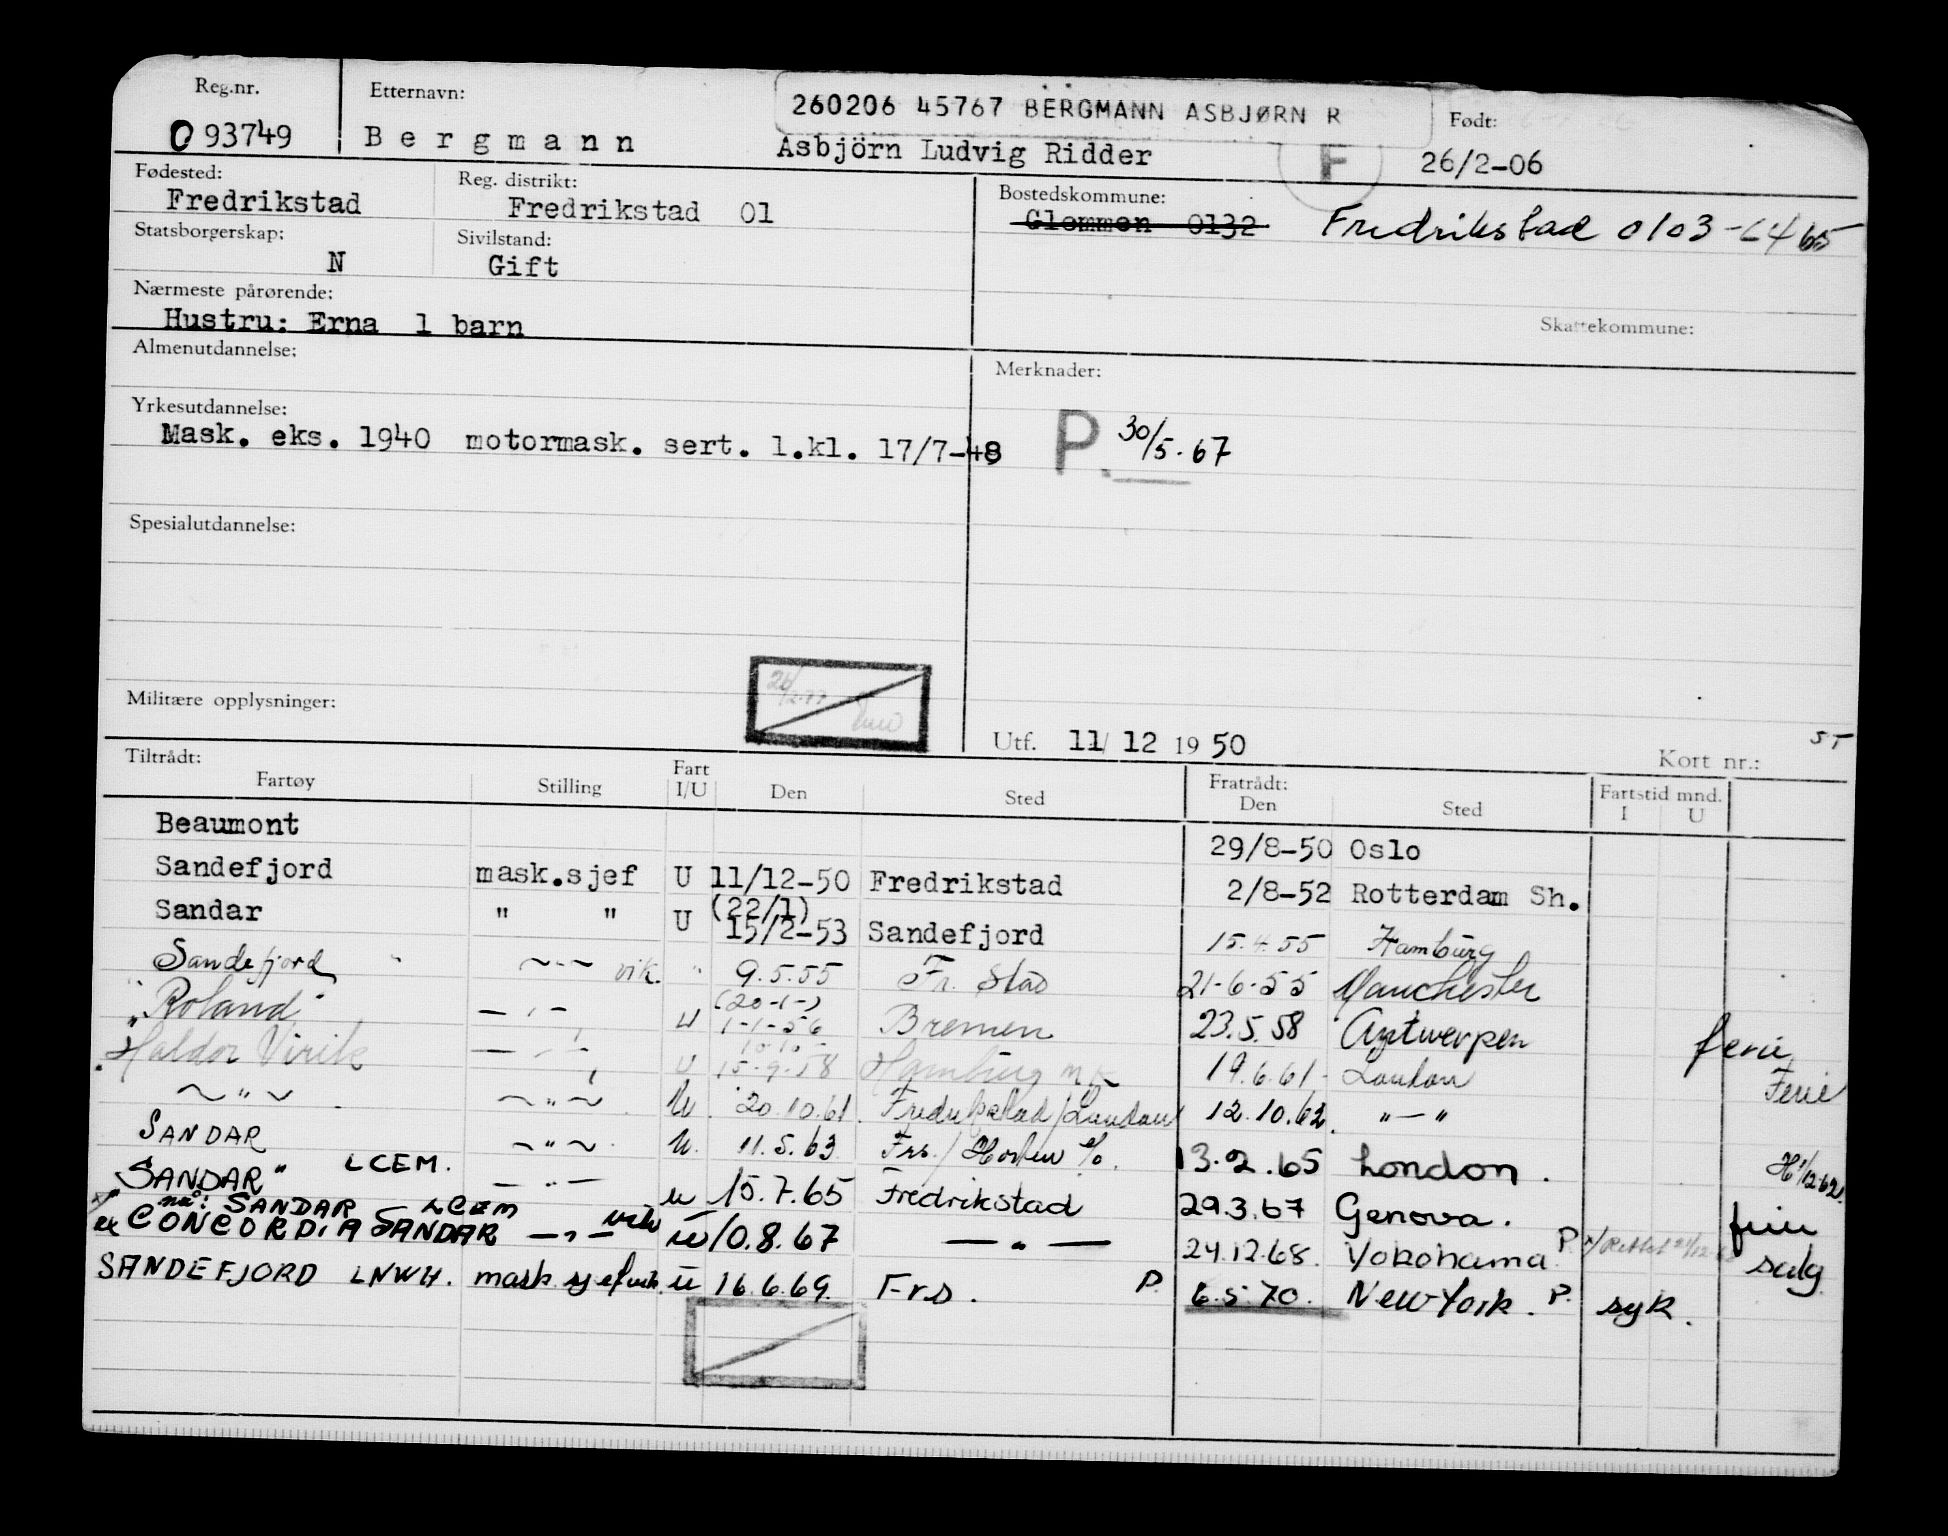 Reg.nr. Etternavn: 260206 45767 BERGMANN ASBJØRN R Født:
093749 Bergmann Asbjörn Ludvig Ridder F 26/2-06
Fødested: Reg. distrikt: Bostedskommune:
Fredrikstad Fredrikstad 01 Glemmen 0132 Fredrikstad 0103 -64 65
Statsborgerskap: Sivilstand:
N Gift
Nærmeste pårørende: Skattekommune:
Hustru: Erna 1 barn
Almenutdannelse: Merknader:
Yrkesutdannelse:
Mask. eks. 1940 motormask. sert. 1.kl. 17/7-48 P. 30/5.67
Spesialutdannelse:
Militære opplysninger:
Utf. 11/12 1950 Kort nr.: ST
Tiltrådt: Fratrådt: Fartstid mnd.
Fartøy Stilling Fart I/U Den Sted Den Sted I U
Beaumont 29/8-50 Oslo
Sandefjord mask.sjef U 11/12-50 Fredrikstad 2/8-52 Rotterdam Sh.
Sandar " " U (22/1) 15/2-53 Sandefjord 15.4.55 Hamburg
Sandefjord " ~"~ vik. " 9.5.55 Fr. Stad 21-6-55 Manchester
"Roland" — " — U (20-1-) 1-1-56 Bremen 23.5.58 Antwerpen ferie
Haldor Virik — " — U 15-9-58 Hamburg 19.6.61 London Ferie
~ " ~ ~ " ~ U. 20.10.61. Fredrikstad/London 12.10.62. " — "
SANDAR ~ " ~ U. 11.5.63 Frs./Horten 13.2.65 London. H 1/12-62.
"SANDAR" LCEM. — " — U 15.7.65 Fredrikstad 29.3.67 Genova. ferie
nå: SANDAR LCEM
ex CONCORDIA SANDAR — " — vik U 10.8.67 — " — 24.12.68. Yokohama P. salg
SANDEFJORD LNWH. mask.sjef vik. U 16.6.69. Frs. P. 6.5.70. New York. P. syk.